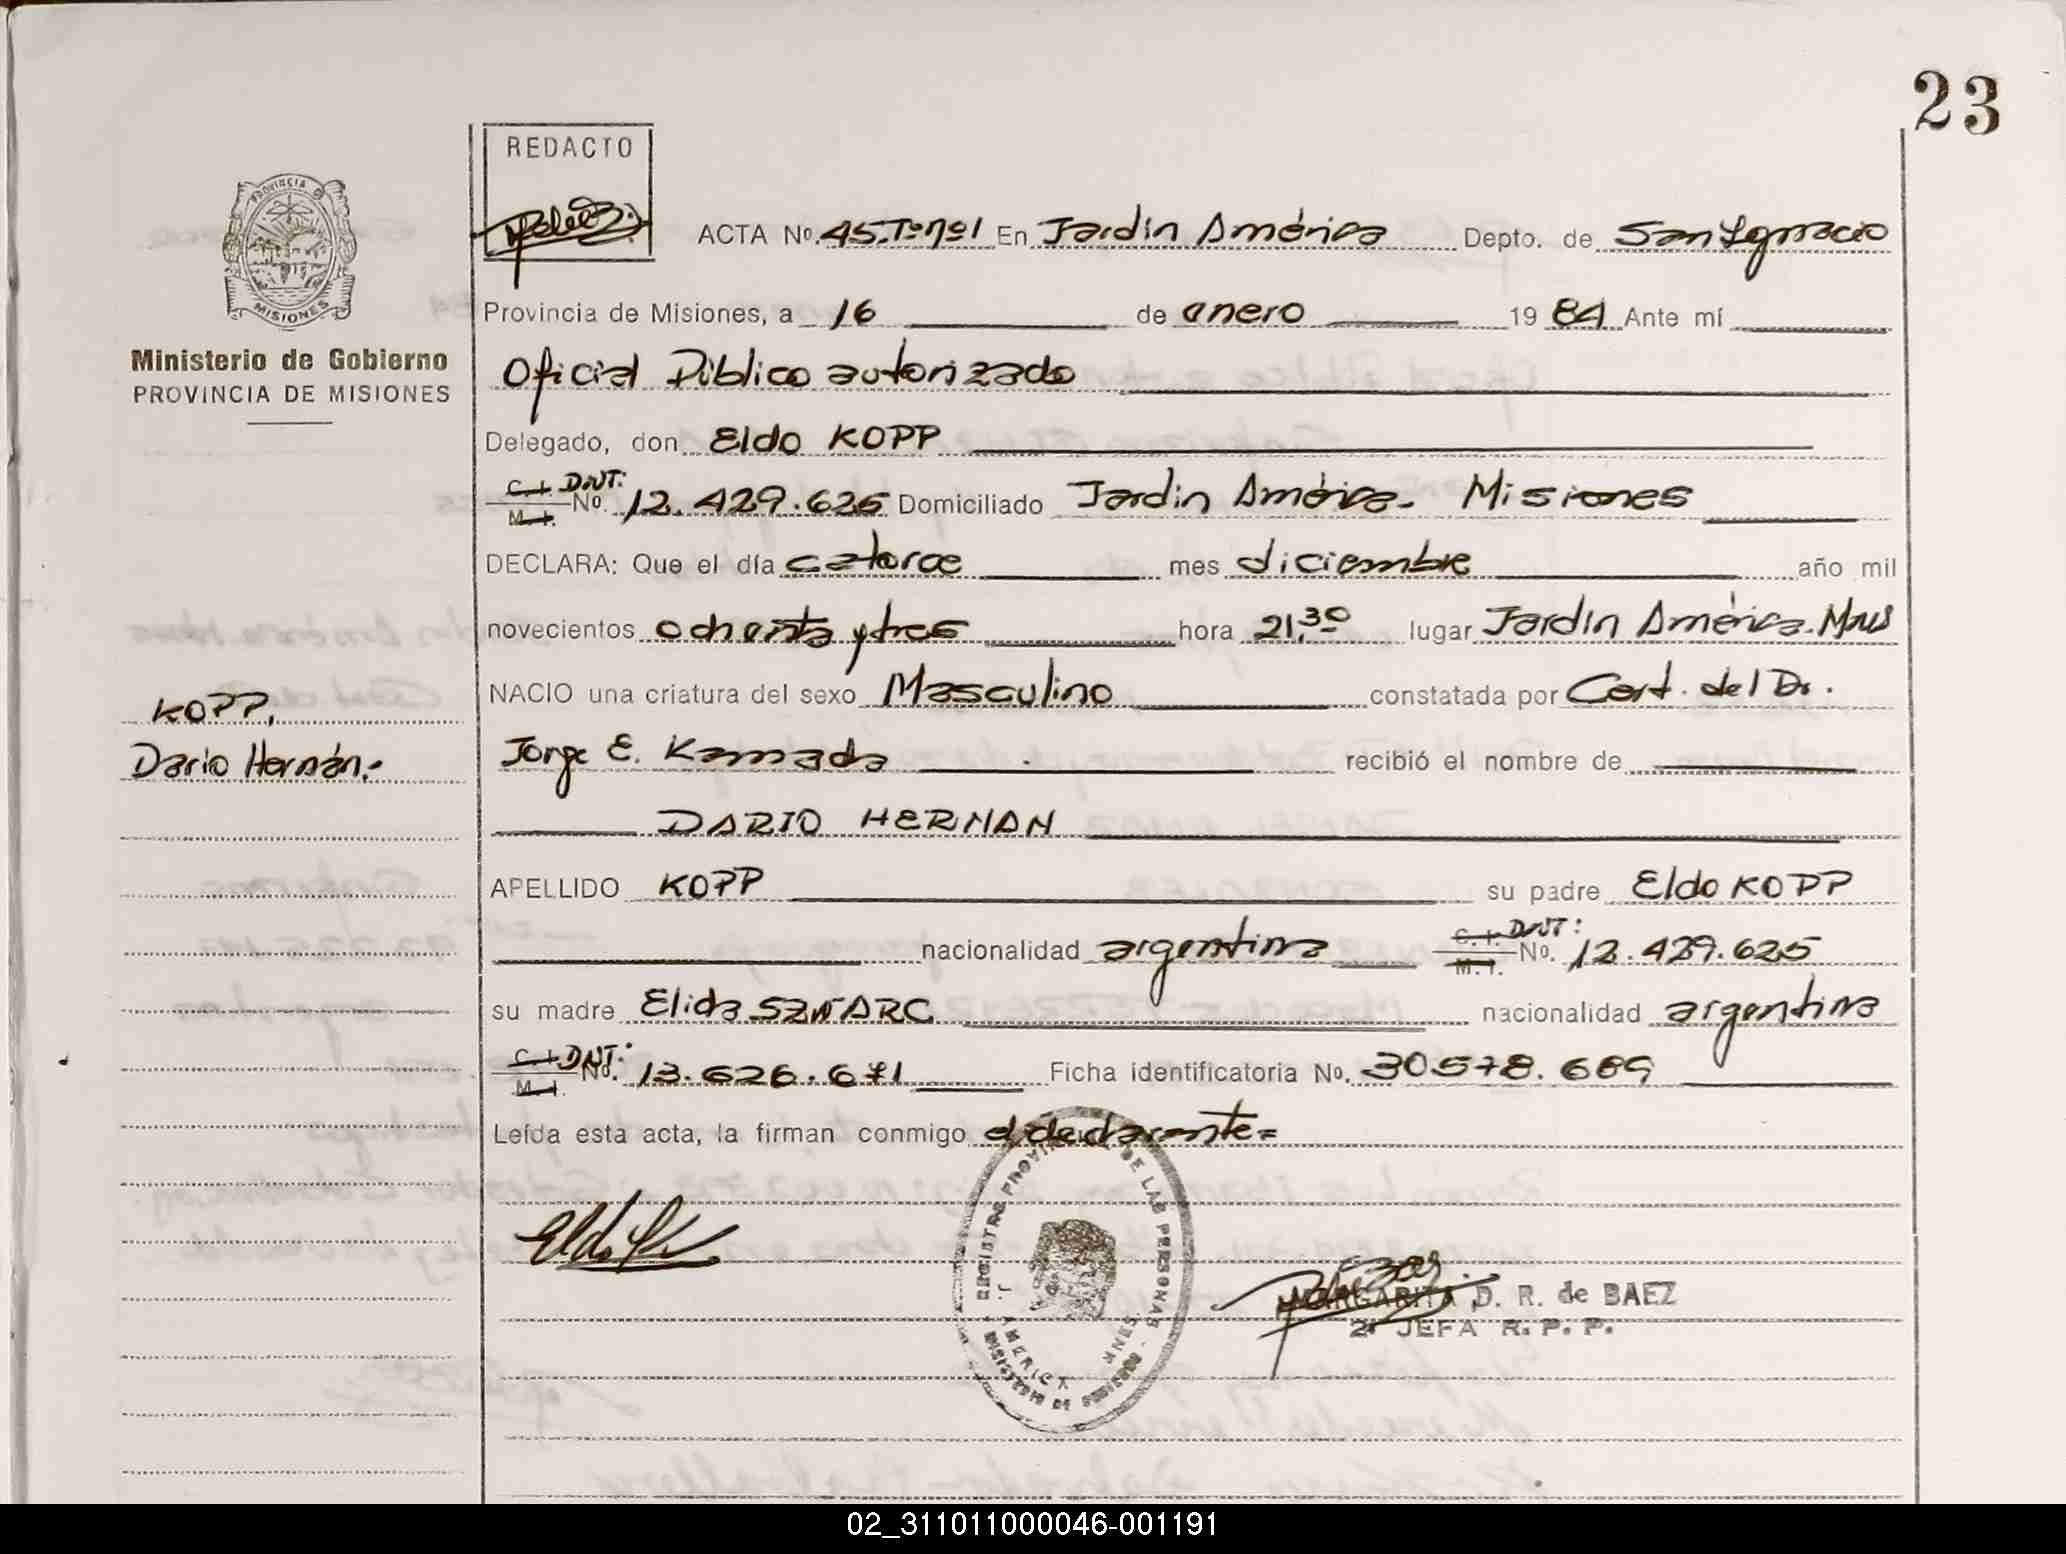 23
REDACTO
PROVINCIA DE
MISIONES
Ministerio de Gobierno
PROVINCIA DE MISIONES
ACTA No. 45.Tºnº1 En Jardín América Depto. de San Ignacio
Provincia de Misiones, a 16 de enero 19 84 Ante mí
Oficial Público autorizado
Delegado, don Eldo KOPP
C.I. M.I. DNI: No. 12.429.625 Domiciliado Jardín América. Misiones
DECLARA: Que el día catorce mes diciembre año mil
novecientos ochenta y tres hora 21,30 lugar Jardín América. Mnes
NACIO una criatura del sexo Masculino constatada por Cert. del Dr.
KOPP,
Dario Hernán.-
Jorge E. Kamada recibió el nombre de
DARIO HERNAN
APELLIDO KOPP su padre Eldo KOPP
nacionalidad argentina C.I. M.I. DNI: No. 12.429.625
su madre Elida SZWARC nacionalidad argentina
C.I. M.I. DNI: No. 13.626.671 Ficha identificatoria No. 30.578.689
Leída esta acta, la firman conmigo el declarante=
REGISTRO PROVINCIAL DE LAS PERSONAS - MISIONES
J. AMERICA
MARGARITA D. R. de BAEZ
2ª JEFA R. P. P.
02_311011000046-001191